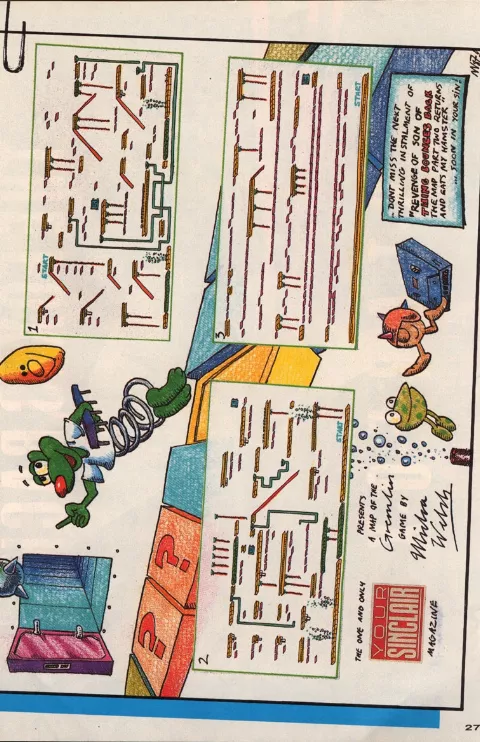 1
START
2
START
3
START
? ?
THE ONE AND ONLY
YOUR
SINCLAIR
MAGAZINE
PRESENTS
A MAP OF THE
Gremlin
GAME BY
.. DONT MISS THE NEXT
THRILLING INSTALMENT OF
"REVENGE OF SON OF
THING BOUNCES BACK
THE MAP PART TWO RETURNS
AND EATS MY HAMSTER"
... SOON IN YOUR SIN!
27